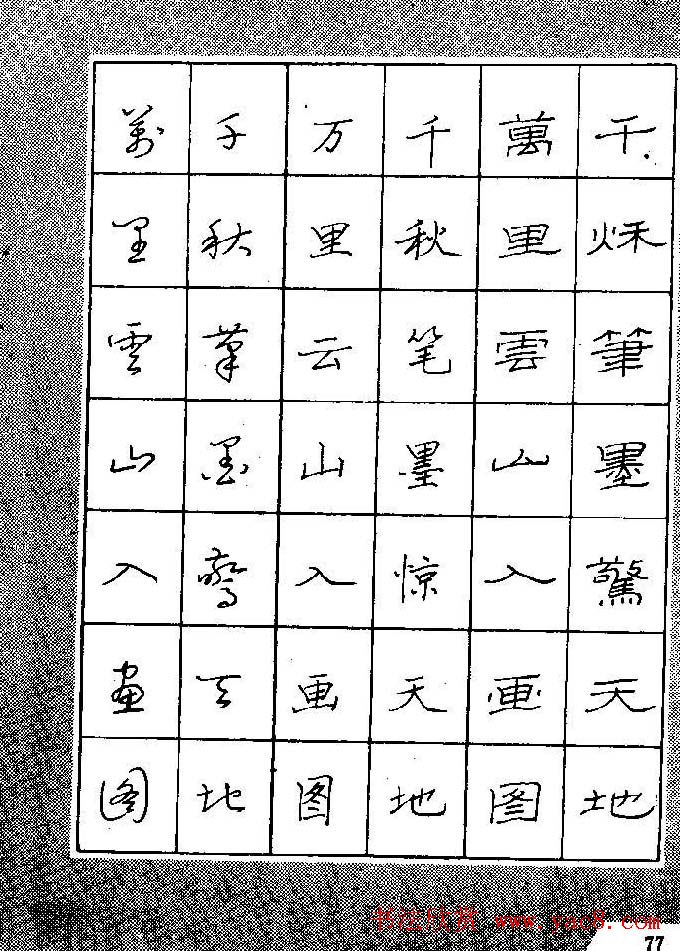 千秌筆墨驚天地
萬里雲山入画图
千秋笔墨惊天地
万里云山入画图
千秋筆墨驚天地
萬里雲山入畫图
书法欣赏 www.yac8.com
77